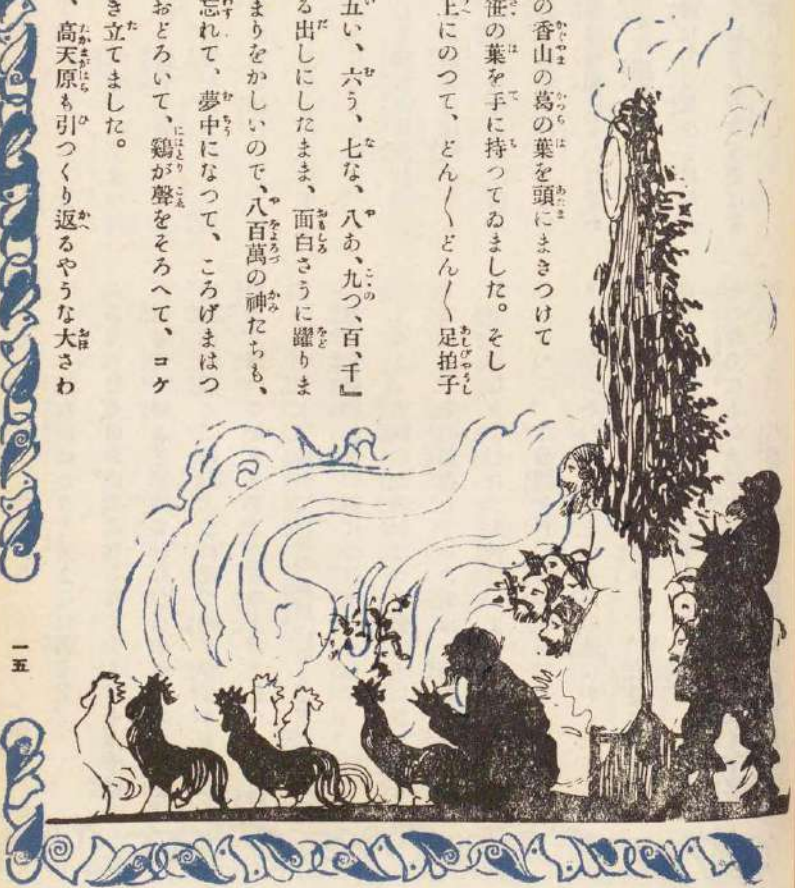 の香山の葛の葉を頭にまきつけて
笹の葉を手に持つてゐました。そし
上にのつて、どん〱どん〱足拍子
五い、六う、七な、八あ、九つ、百、千』
る出しにしたまま、面白さうに躍りま
まりをかしいので、八百萬の神たちも、
忘れて、夢中になって、ころげまはつ
おどろいて、鷄が聲をそろへて、コケ
き立てました。
、高天原も引つくり返るやうな大さわ
一五